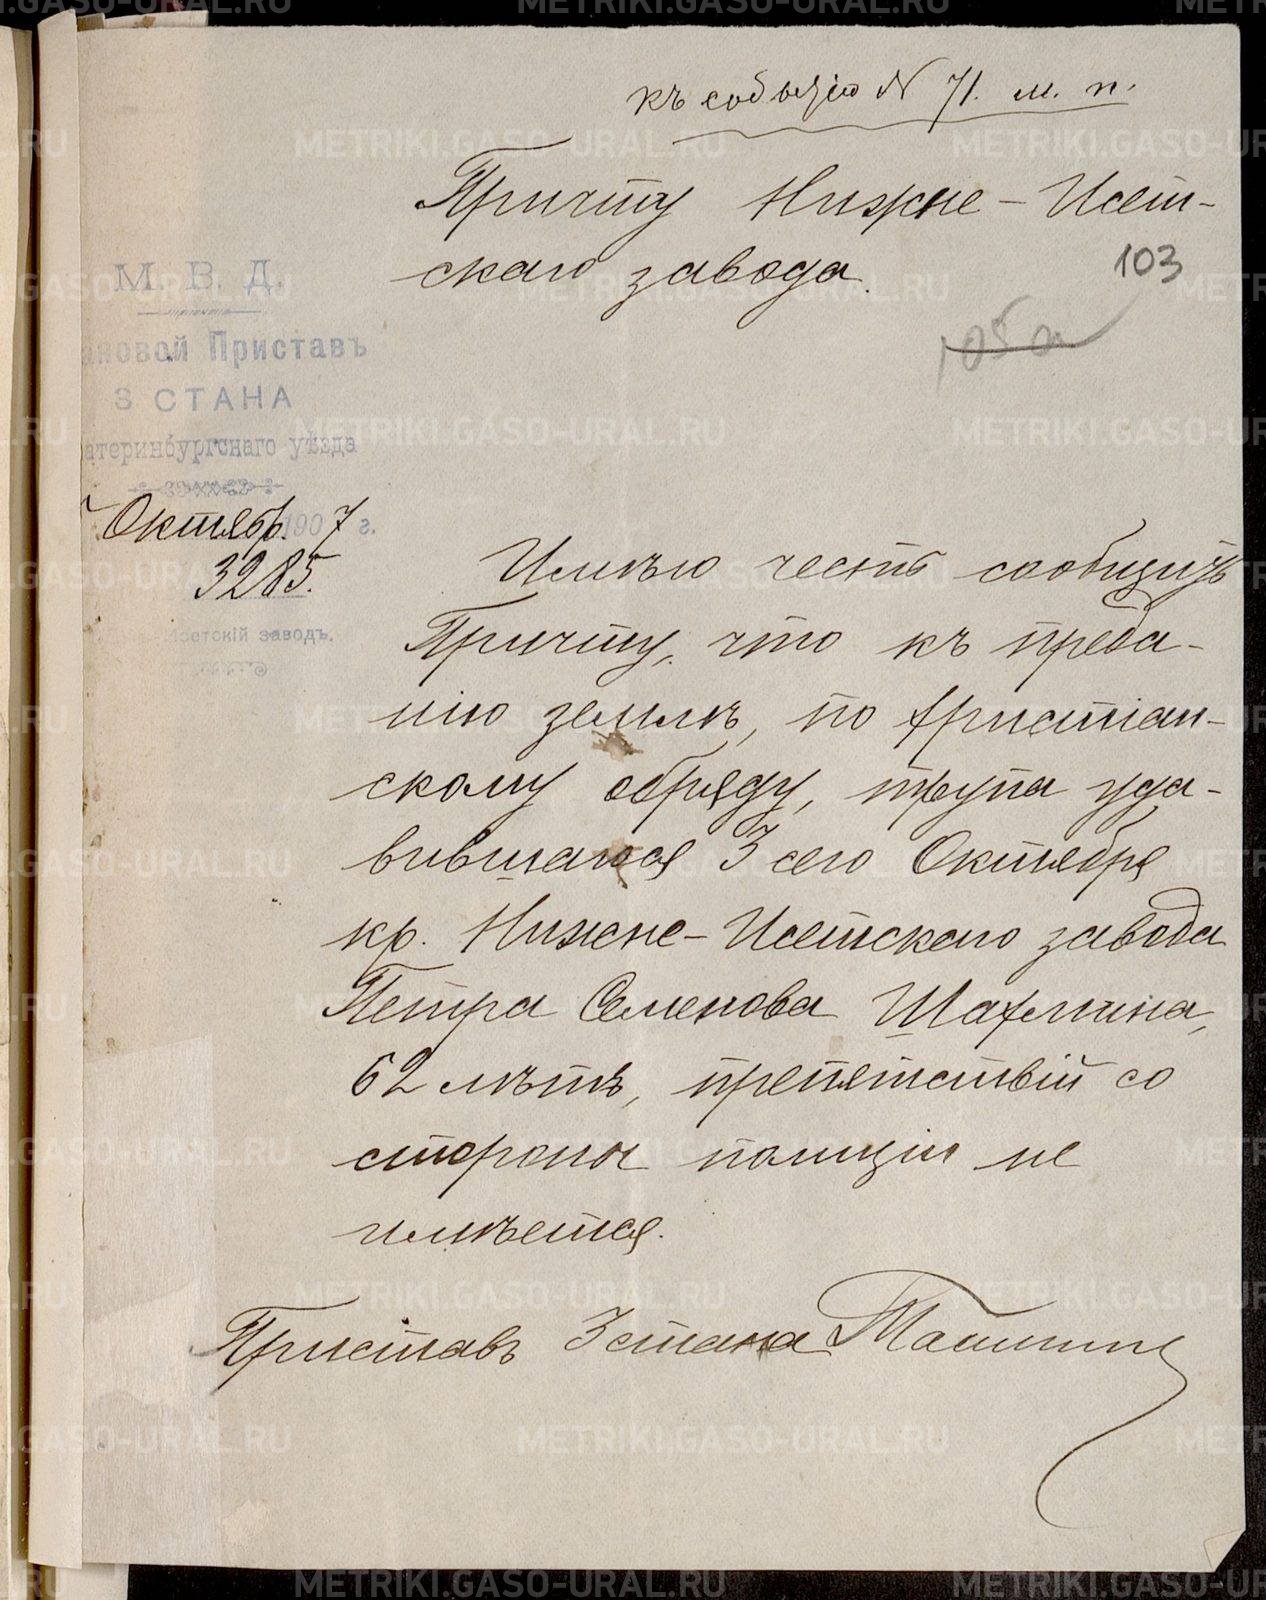 къ событію N 71. м. п.
Причту Нижне-Исет-
скаго завода.
103
105а
М. В. Д.
ановой Приставъ
3 СТАНА
атеринбургскаго уѣзда
Октябр. 1907 г.
3285.
Исетскій заводъ.
Имѣю честь сообщить
Причту, что къ преда-
нію землѣ, по христіан-
скому обряду, трупа уда-
вившагося 3 сего Октября
кр. Нижне-Исетскаго завода
Петра Семенова Шахмина,
62 лѣтъ, препятствій со
стороны полиціи не
имѣется.
Приставъ 3 стана
METRIKI.GASO-URAL.RU